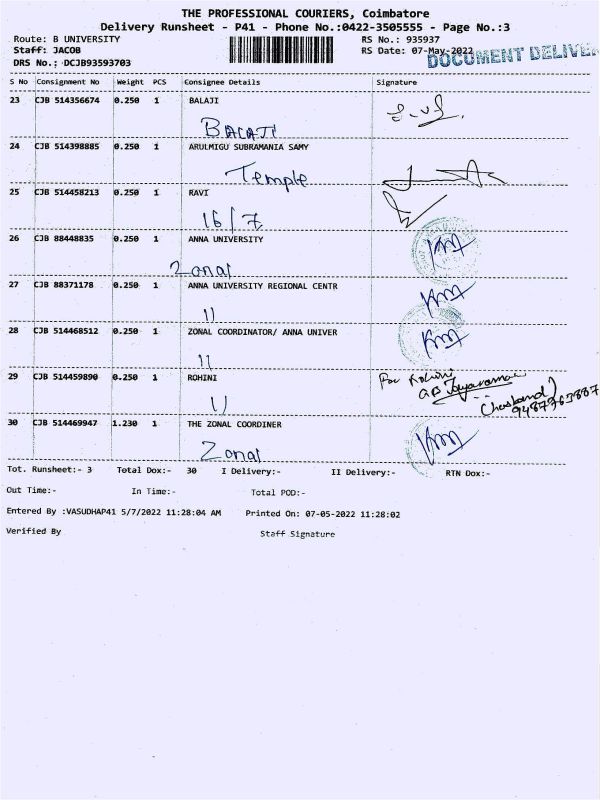 THE PROFESSIONAL COURIERS, Coimbatore
Delivery Runsheet - P41 - Phone No.:0422-3505555 - Page No.:3
Route: B UNIVERSITY RS No.: 935937
Staff: JACOB RS Date: 07-May-2022
DOCUMENT DELIVE
DRS No.: DCJB93593703
S No Consignment No Weight PCS Consignee Details Signature
23 CJB 514356674 0.250 1 BALAJI
BALAJI
24 CJB 514398885 0.250 1 ARULMIGU SUBRAMANIA SAMY
Temple
25 CJB 514458213 0.250 1 RAVI
16/7
26 CJB 88448835 0.250 1 ANNA UNIVERSITY
Zonal
27 CJB 88371178 0.250 1 ANNA UNIVERSITY REGIONAL CENTR
11
28 CJB 514468512 0.250 1 ZONAL COORDINATOR/ ANNA UNIVER
11
29 CJB 514459890 0.250 1 ROHINI
For Rohini
Jayaraman
(husband)
9487763887
30 CJB 514469947 1.230 1 THE ZONAL COORDINER
Zonal
Tot. Runsheet:- 3 Total Dox:- 30 I Delivery:- II Delivery:- RTN Dox:-
Out Time:- In Time:- Total POD:-
Entered By :VASUDHAP41 5/7/2022 11:28:04 AM Printed On: 07-05-2022 11:28:02
Verified By Staff Signature